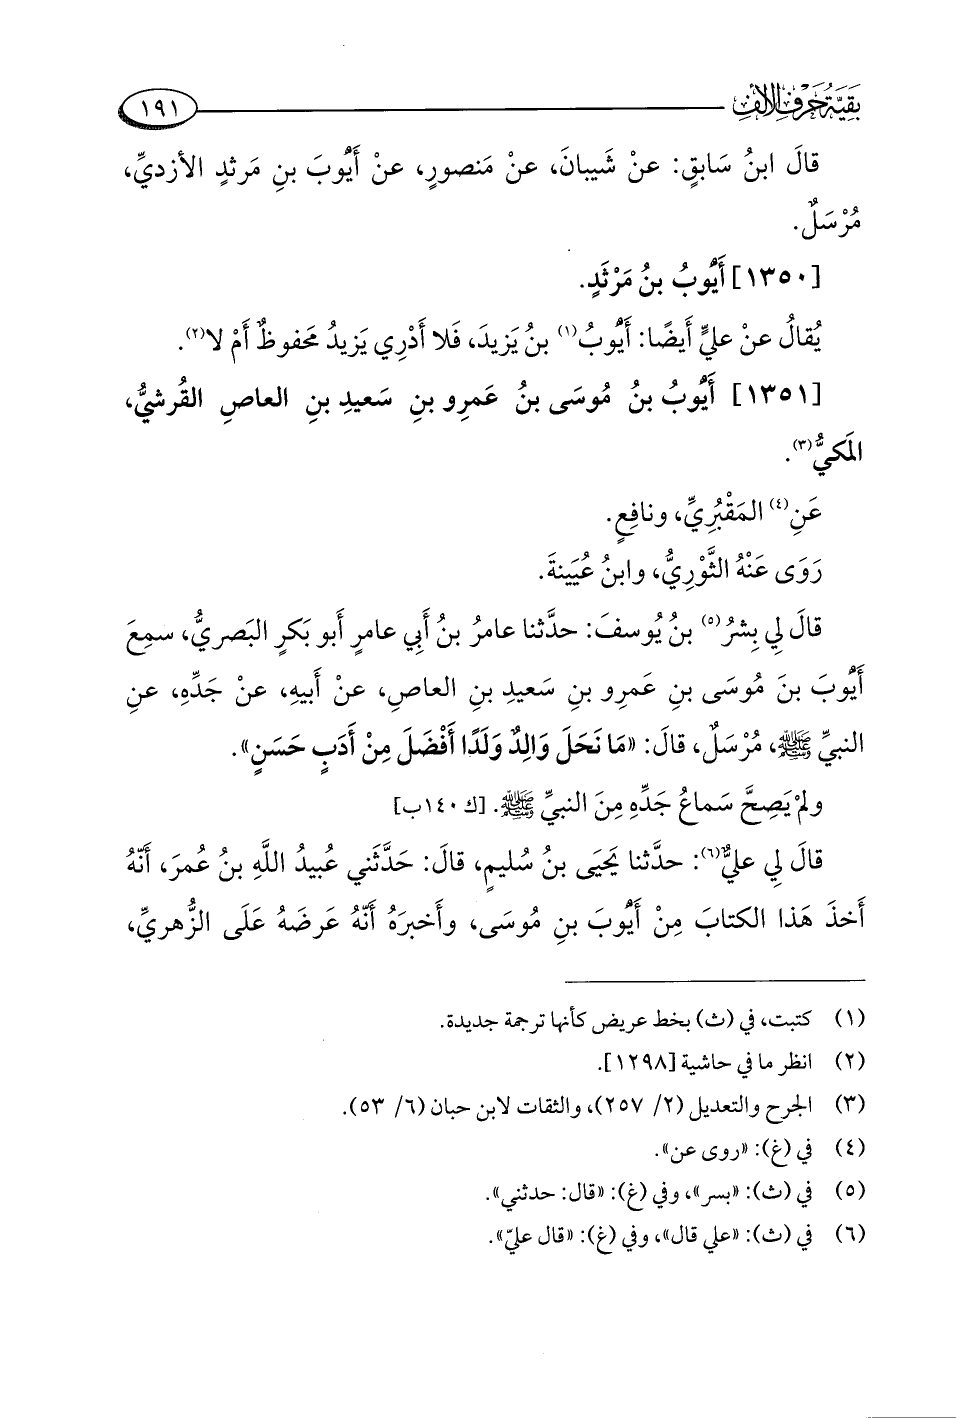 بَقِيَّة حَرف الألف
١٩١
قالَ ابنُ سَابقٍ: عنْ شَيبانَ، عنْ مَنصورٍ، عنْ أَيُّوبَ بنِ مَرثدٍ الأزديِّ،
مُرْسَلٌ.
[١٣٥٠] أَيُّوبُ بنُ مَرْثَدٍ.
يُقالُ عنْ عليٍّ أيضًا: أَيُّوبُ(١) بنُ يَزيدَ، فَلا أَدْرِي يَزيدُ مَحفوظٌ أَمْ لا(٢).
[١٣٥١] أَيُّوبُ بنُ مُوسَى بنُ عَمرِو بنِ سَعيدِ بنِ العاصِ القُرشيُّ،
المَكيُّ(٣).
عَنِ(٤) المَقْبُرِيِّ، ونافِعٍ.
رَوَى عَنْهُ الثَّوْرِيُّ، وابنُ عُيَينةَ.
قالَ لي بِشرُ(٥) بنُ يُوسفَ: حدَّثنا عامرُ بنُ أَبي عامرٍ أَبو بَكرٍ البَصريُّ، سمِعَ
أَيُّوبَ بنَ مُوسَى بنِ عَمرِو بنِ سَعيدِ بنِ العاصِ، عنْ أَبيهِ، عنْ جَدِّهِ، عنِ
النبيِّ ﷺ، مُرْسَلٌ، قالَ: «مَا نَحَلَ وَالِدٌ وَلَدًا أَفْضَلَ مِنْ أَدَبٍ حَسَنٍ».
ولمْ يَصِحَّ سَماعُ جَدِّهِ مِنَ النبيِّ ﷺ. [ك ١٤٠ب]
قالَ لي عليٌّ(٦): حدَّثنا يَحيَى بنُ سُليمٍ، قالَ: حَدَّثَني عُبيدُ اللَّهِ بنُ عُمرَ، أَنَّهُ
أَخذَ هَذا الكتابَ مِنْ أَيُّوبَ بنِ مُوسَى، وأَخبرَهُ أَنَّهُ عَرضَهُ عَلَى الزُّهريِّ،
(١) كتبت، في (ث) بخط عريض كأنها ترجمة جديدة.
(٢) انظر ما في حاشية [١٢٩٨].
(٣) الجرح والتعديل (٢/ ٢٥٧)، والثقات لابن حبان (٦/ ٥٣).
(٤) في (غ): «روى عن».
(٥) في (ث): «بسر»، وفي (غ): «قال: حدثني».
(٦) في (ث): «علي قال»، وفي (غ): «قال عليّ».